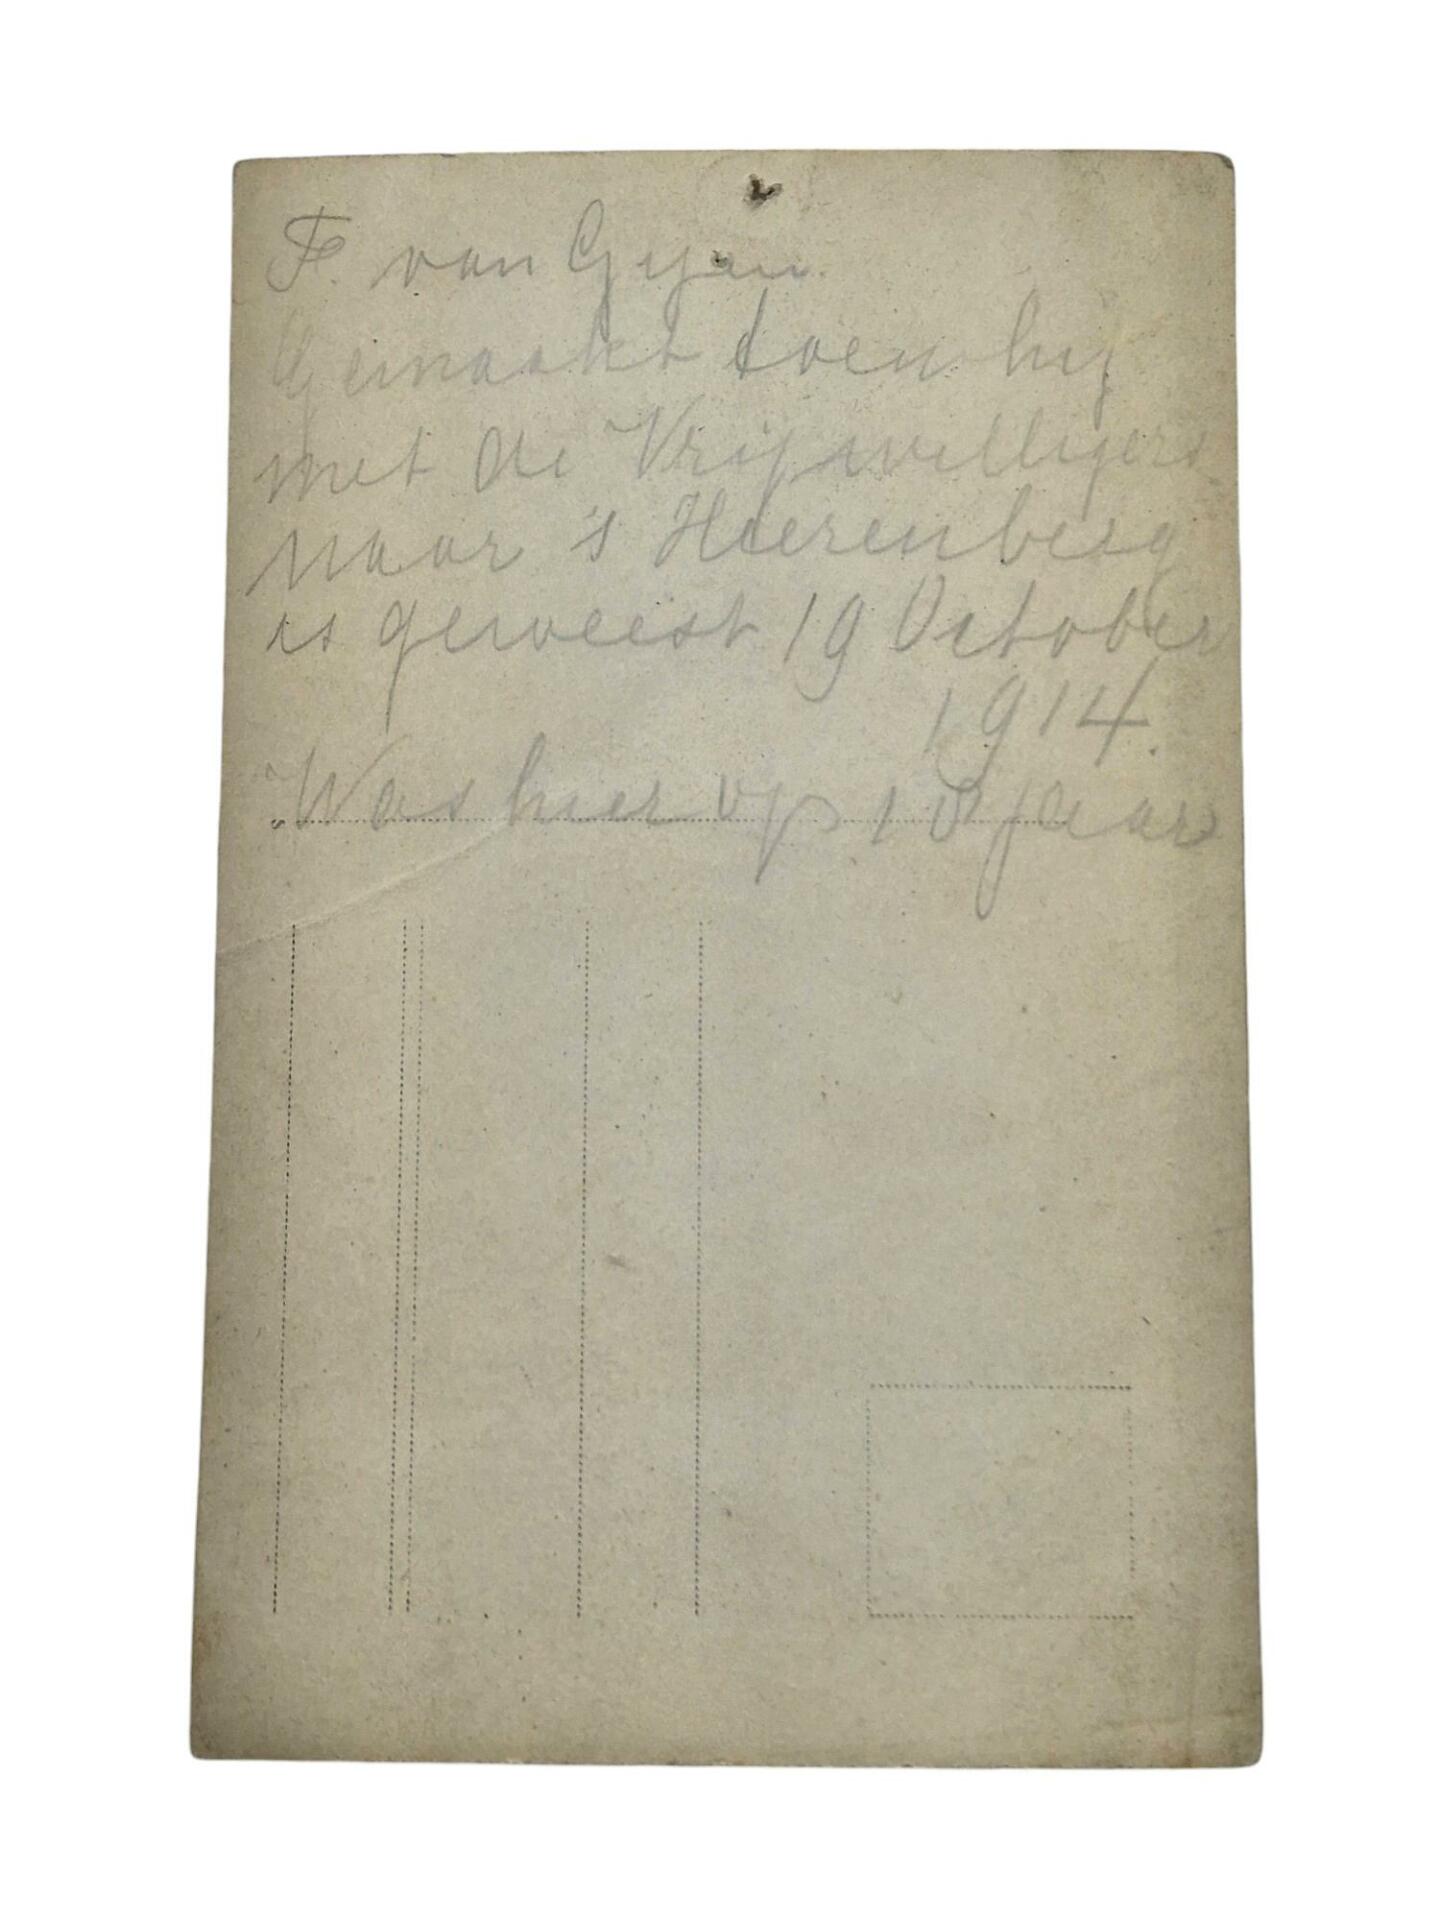 F. van Gyn.
Gemaakt toen hij
met de Vrijwilligers
naar 's Heerenberg
is geweest 19 October
1914.
Was hier op 18 jaar